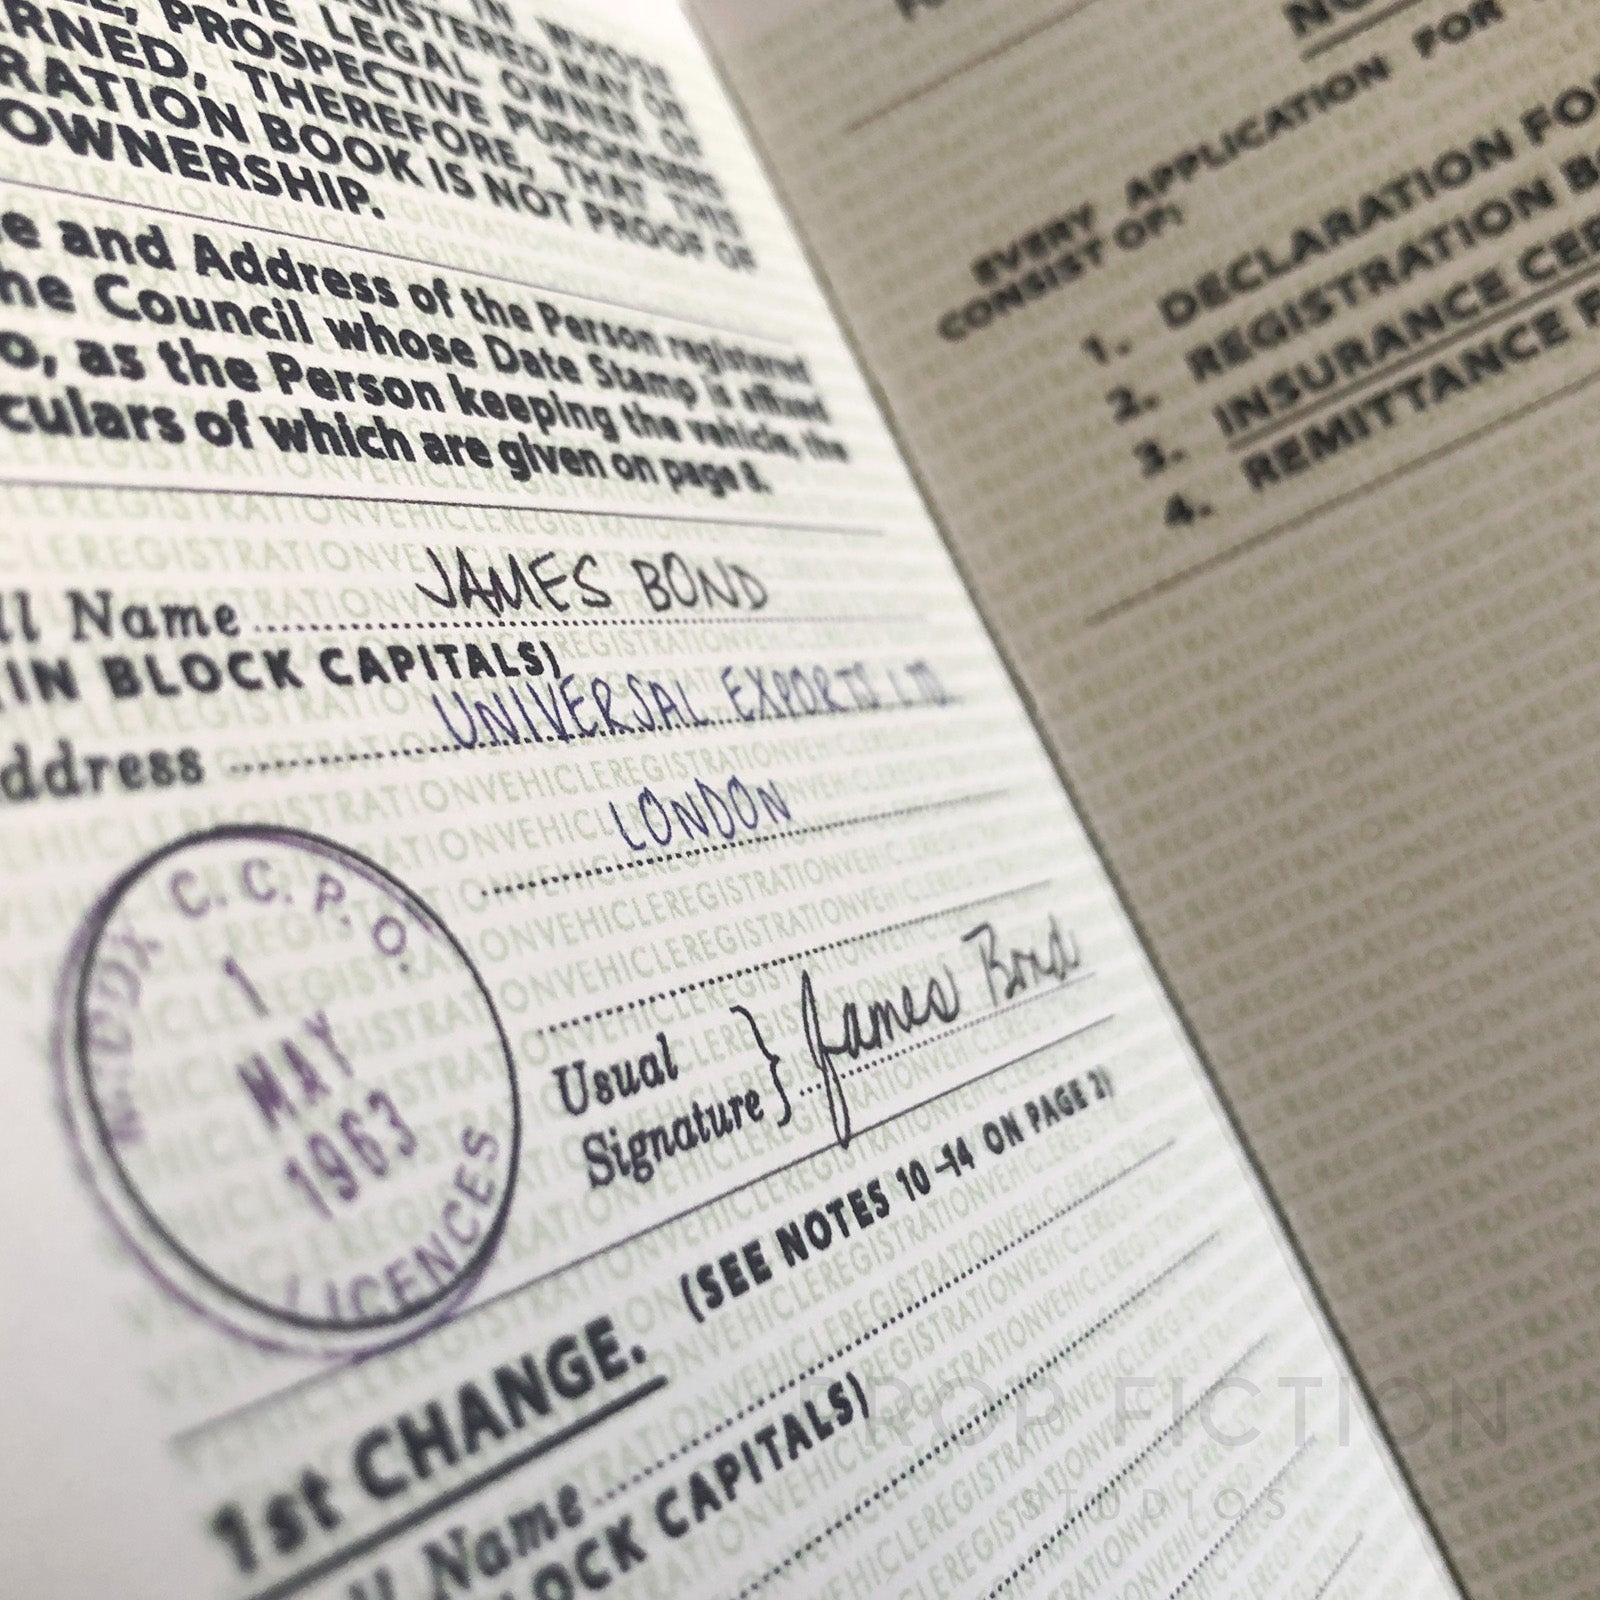 REGISTERED MAY OR
THE LEGAL OWNER OF
PROSPECTIVE PURCHASERS
THEREFORE, THAT THIS
RATION BOOK IS NOT PROOF OF
OWNERSHIP.
e and Address of the Person registered
he Council whose Date Stamp is affixed
o, as the Person keeping the vehicle, the
culars of which are given on page 8.
ll Name JAMES BOND
(IN BLOCK CAPITALS)
ddress UNIVERSAL EXPORTS LTD.
LONDON
MIDDX C.C. P.O.
1
MAY
1963
LICENCES
Usual
Signature } James Bond
1st CHANGE. (SEE NOTES 10-14 ON PAGE 2)
ll Name
BLOCK CAPITALS)
EVERY APPLICATION FOR
CONSIST OF:
1. DECLARATION FO
2. REGISTRATION B
3. INSURANCE CER
4. REMITTANCE F
PROP FICTION
STUDIOS